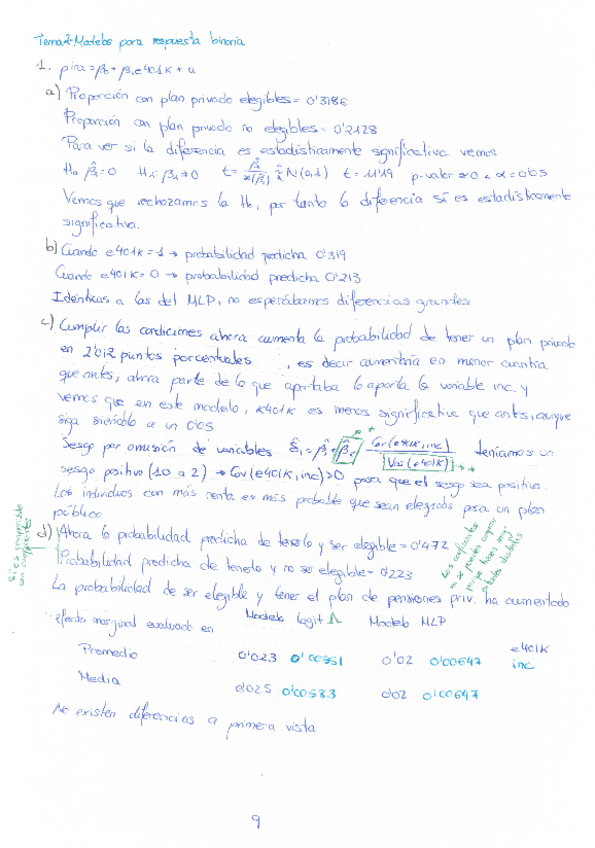 Tema 2-Modelos para respuesta binaria
1. pira = β0 + β1 e401k + u
a) Proporción con plan privado elegibles = 0'3186
Proporción con plan privado no elegibles = 0'2128
Para ver si la diferencia es estadísticamente significativa vemos
H0 β̂1 = 0 H1: β1 ≠ 0 t = N(0,1) t = 11'19 p-valor ≈ 0 < α = 0'05
Vemos que rechazamos la H0, por tanto la diferencia sí es estadísticamente
significativa.
b) Cuando e401k = 1 → probabilidad predicha 0'319
Cuando e401k = 0 → probabilidad predicha 0'213
Idénticas a las del MLP, no esperábamos diferencias grandes
c) Cumplir las condiciones ahora aumenta la probabilidad de tener un plan privado
en 2'012 puntos porcentuales, es decir aumentaría en menor cuantía
que antes, ahora parte de lo que aportaba lo aporta la variable inc. y
vemos que en este modelo, k401k es menos significativa que antes, aunque
siga siéndolo a un 0'05
Sesgo por omisión de variables Cov(e401k, inc) teníamos un
Var(e401k)
sesgo positivo (10 a 2) → Cov(e401k, inc) > 0 para que el sesgo sea positivo.
Los individuos con más renta es más probable que sean elegidos para un plan
público
d) Ahora la probabilidad predicha de tenerlo y ser elegible = 0'472
Probabilidad predicha de tenerlo y no ser elegible = 0'223
Los coeficientes
no se pueden comparar
porque tienen
distintas
La probabilidad de ser elegible y tener el plan de pensiones priv. ha aumentado
efecto marginal evaluado en Modelo logit Λ Modelo MLP
Promedio 0'023 0'00551 0'02 0'00647 e401k
inc
Media 0'025 0'00583 0'02 0'00647
No existen diferencias a primera vista
9